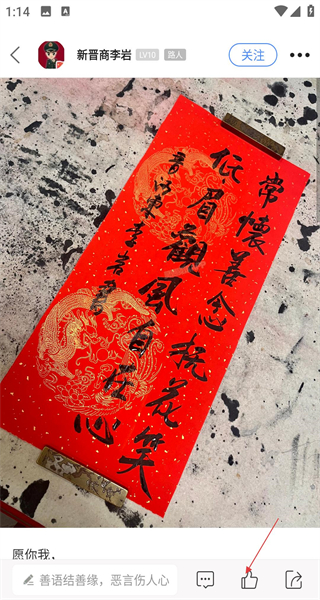 1:14
新晋商李岩
LV10
路人
关注
常懷善念桃花笑
低眉觀風自在心
李岩書
愿你我，
善语结善缘，恶言伤人心